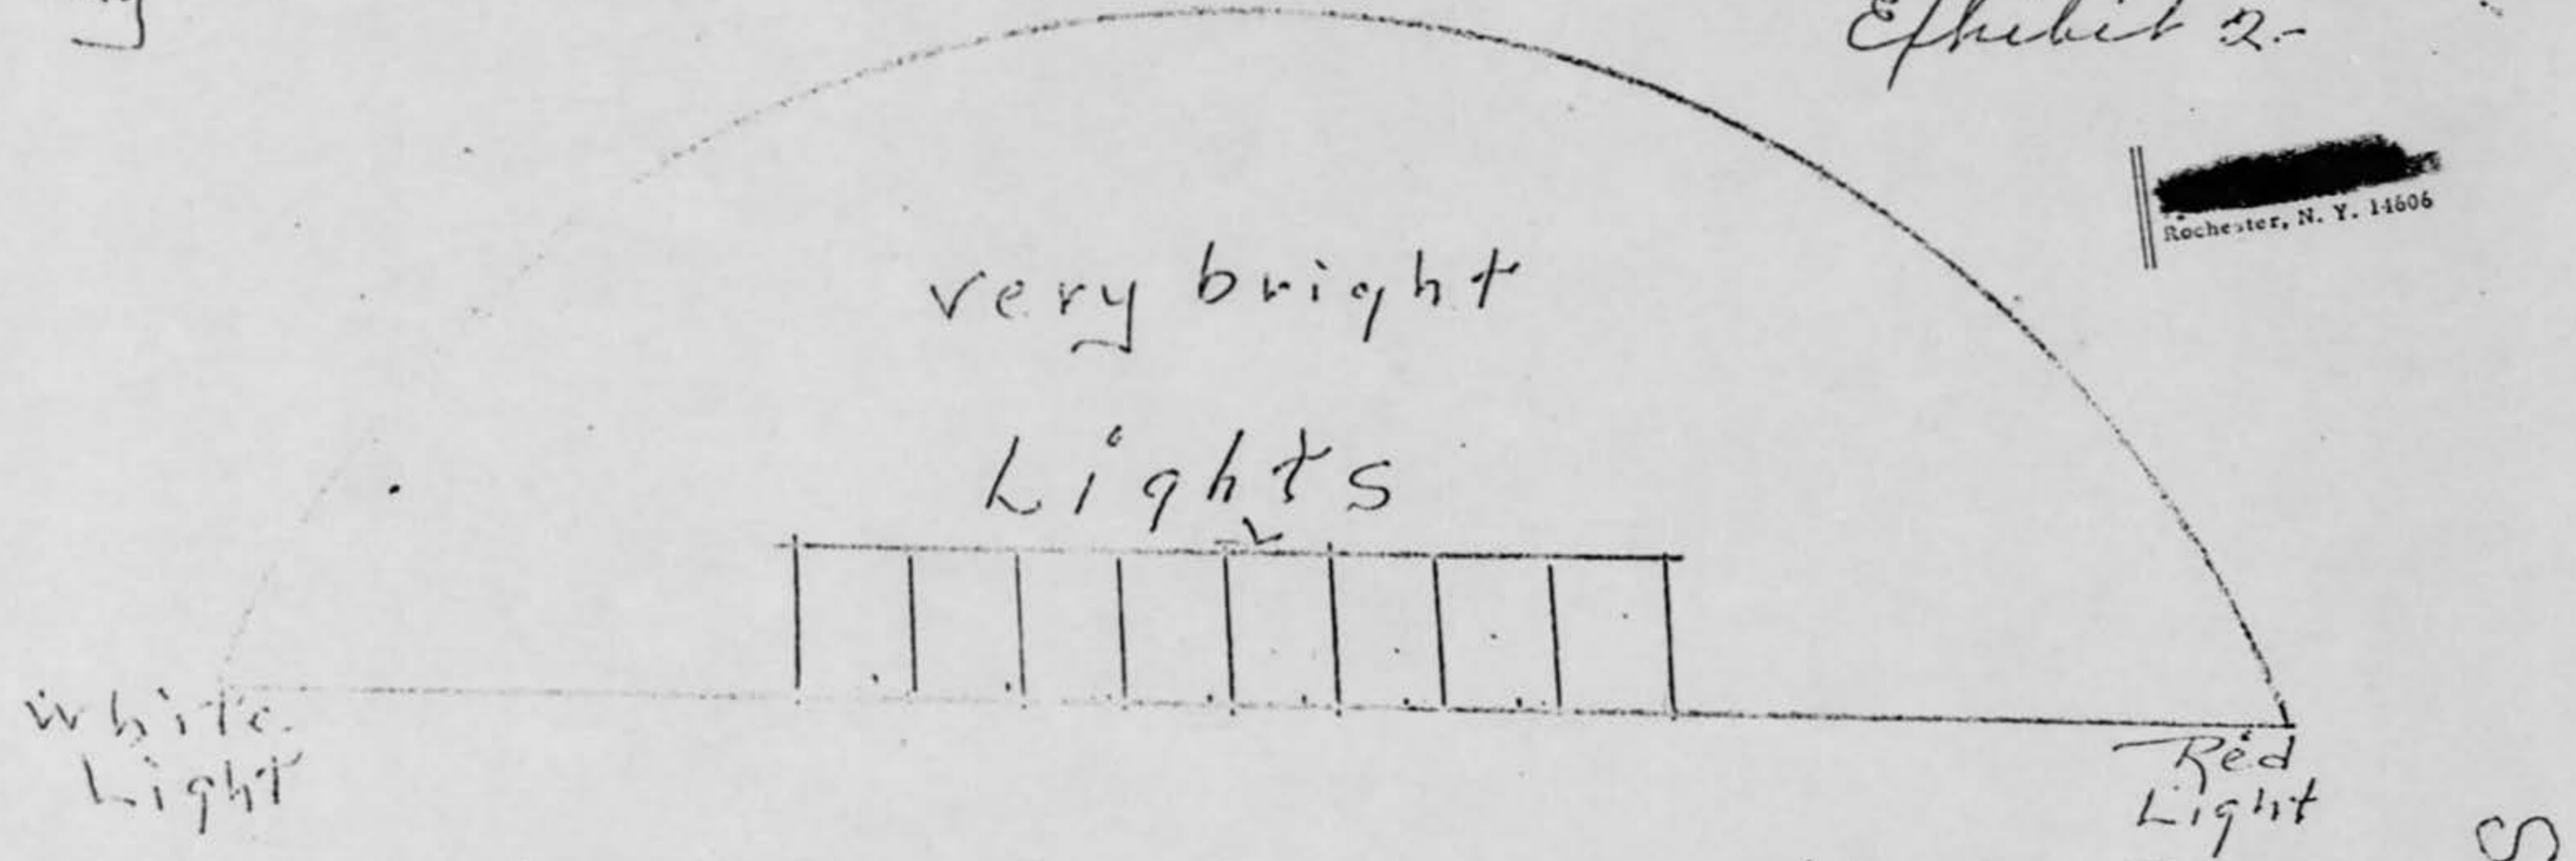 Exhibit 2-
Rochester, N. Y. 14606
very bright
Lights
White
Light
Red
Light